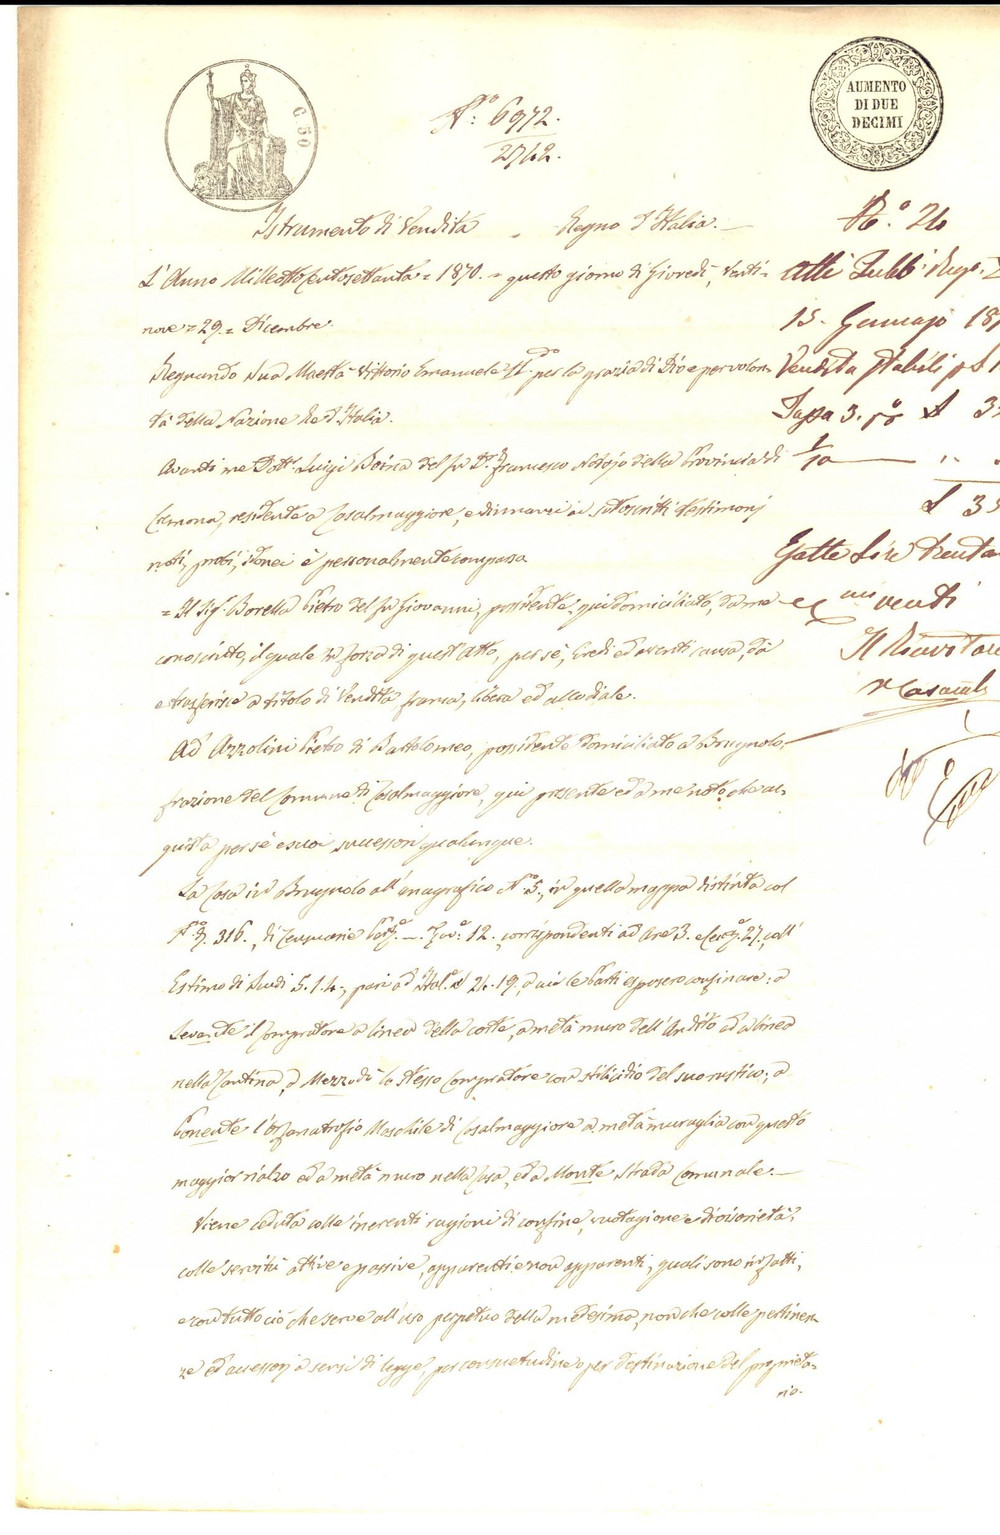 C. 50
AUMENTO
DI DUE
DECIMI
N.° 6972.
2742.
Istrumento di Vendita - Regno d'Italia.
L'Anno Milleottocentosettanta = 1870. = questo giorno di Giovedì, Venti-
nove = 29. = Dicembre.
Regnando Sua Maestà Vittorio Emanuele II.do per la grazia di Dio e per volon-
tà della Nazione Re d'Italia.
Avanti me Dott. Luigi Boina del fu D.r Francesco Notajo della Provincia di
Cremona, residente a Casalmaggiore, e dinnanzi ai sottoscritti testimonj
noti, probi, idonei è personalmente comparso
= Il Sig.r Borella Pietro del fu Giovanni, possidente, qui domiciliato, da me
conosciuto, il quale in forza di quest'Atto, per sè, Eredi ed aventi causa, dà
e trasferisce a titolo di Vendita franca, libera ed allodiale.
Ad Azzolini Pietro di Bartolomeo, possidente domiciliato a Brugnolo,
frazione del Comune di Casalmaggiore, qui presente ed a me noto, che ac-
quista per sè e suoi successori qualunque.
La Casa in Brugnolo all'anagrafico N.° 5., in quella mappa distinta col
N.° 316., di Censuarie Pert.e —. Tav.e 12., corrispondenti ad Are 3. e Cent. 27., coll'
Estimo di Scudi 5. 1. 4., pari ad Ital.e £ 24. 19., a cui le Parti esposero confinare: a
Levante il Compratore a linea della corte, a metà muro dell'Andito ed a linea
nella Cantina, a Mezzodì lo stesso Compratore con stilicidio del suo rustico; a
Ponente l'Orfanatrofio Maschile di Casalmaggiore a metà muraglia con questo
maggior rialzo ed a metà muro nella Casa, ed a Monte Strada Comunale.
Viene ceduta colle inerenti ragioni di confine, e divisorietà,
colle servitù attive e passive, apparenti e non apparenti, quali sono infatti,
e con tutto ciò che serve all'uso perpetuo della medesima, non che colle pertinen-
ze ed accessorj a sensi di legge, per consuetudine o per destinazione del proprieta-
rio.
N.° 24
Atti Pubb.
15. Gennajo 187
Vendita stabili p £
Tassa 3. % £ 3
1/10 — " .
£ 35
Esatte Lire trenta
e C.mi venti
Il Ricevitore